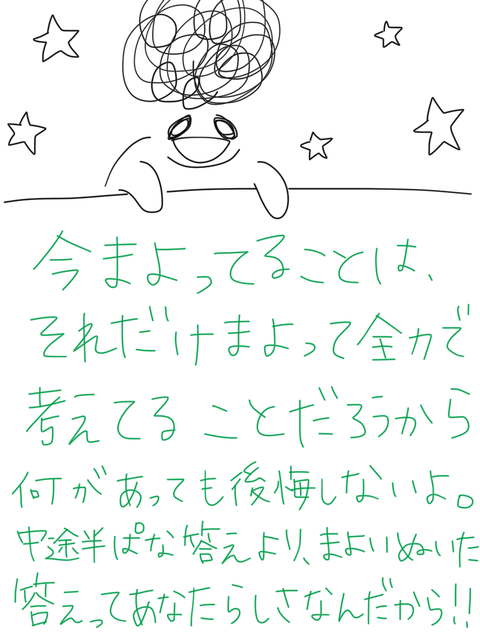 今まよってることは、
それだけまよって全力で
考えてることだろうから
何があっても後悔しないよ。
中途半ぱな答えより、まよいぬいた
答えってあなたらしさなんだから!!